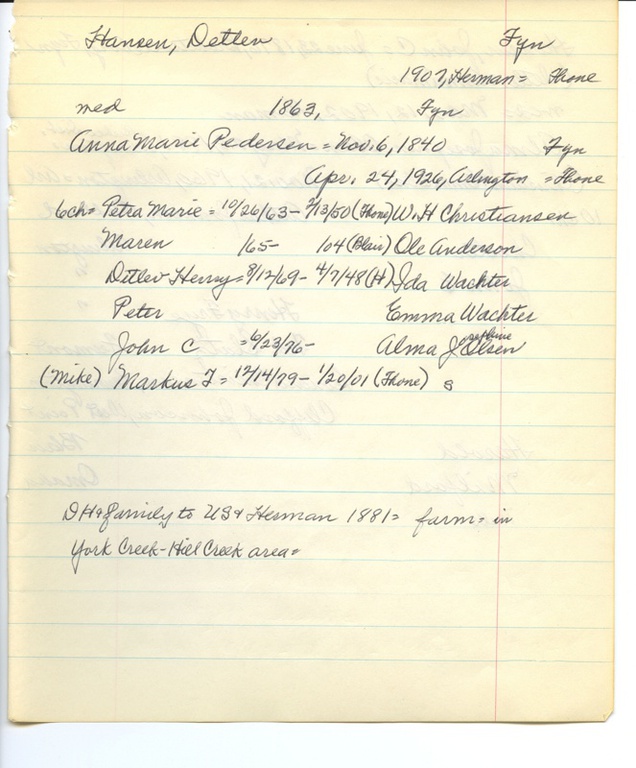 Hansen, Detlev Fyn
1907, Herman = Fhone
med 1863, Fyn
Anna Marie Pedersen = Nov. 6, 1840 Fyn
Apr. 24, 1926, Arlington = Fhone
6ch = Petra Marie = 10/26/63 - 2/13/50 (Fhone) W.H Christiansen
Maren /65- 104 (Blair) Ole Anderson
Detlev Henry = 8/12/69 - 4/7/48 (H) Ida Wachter
Peter Emma Wachter
John C = 6/23/76- Alma Josephine Olsen
(Mike) Markus F = 12/14/79 - 1/20/01 (Fhone) s
DH & family to US & Herman 1881 = farm = in
York Creek - Hill Creek area =